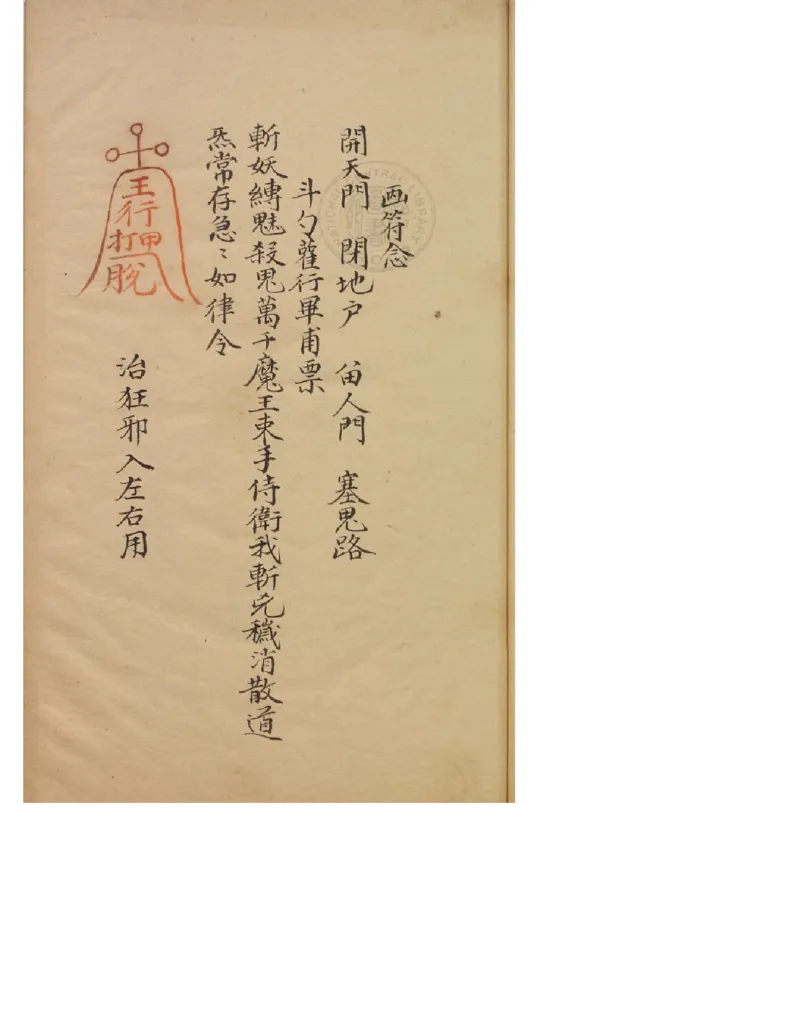 画符念
開天門 閉地户 畄人門 塞鬼路
斗勺雚行畢甫票
斬妖縛魅殺鬼萬千魔王束手侍衛我斬兇穢消散道
炁常存急〻如律令
王行
打甲
脫
治狂邪入左右用